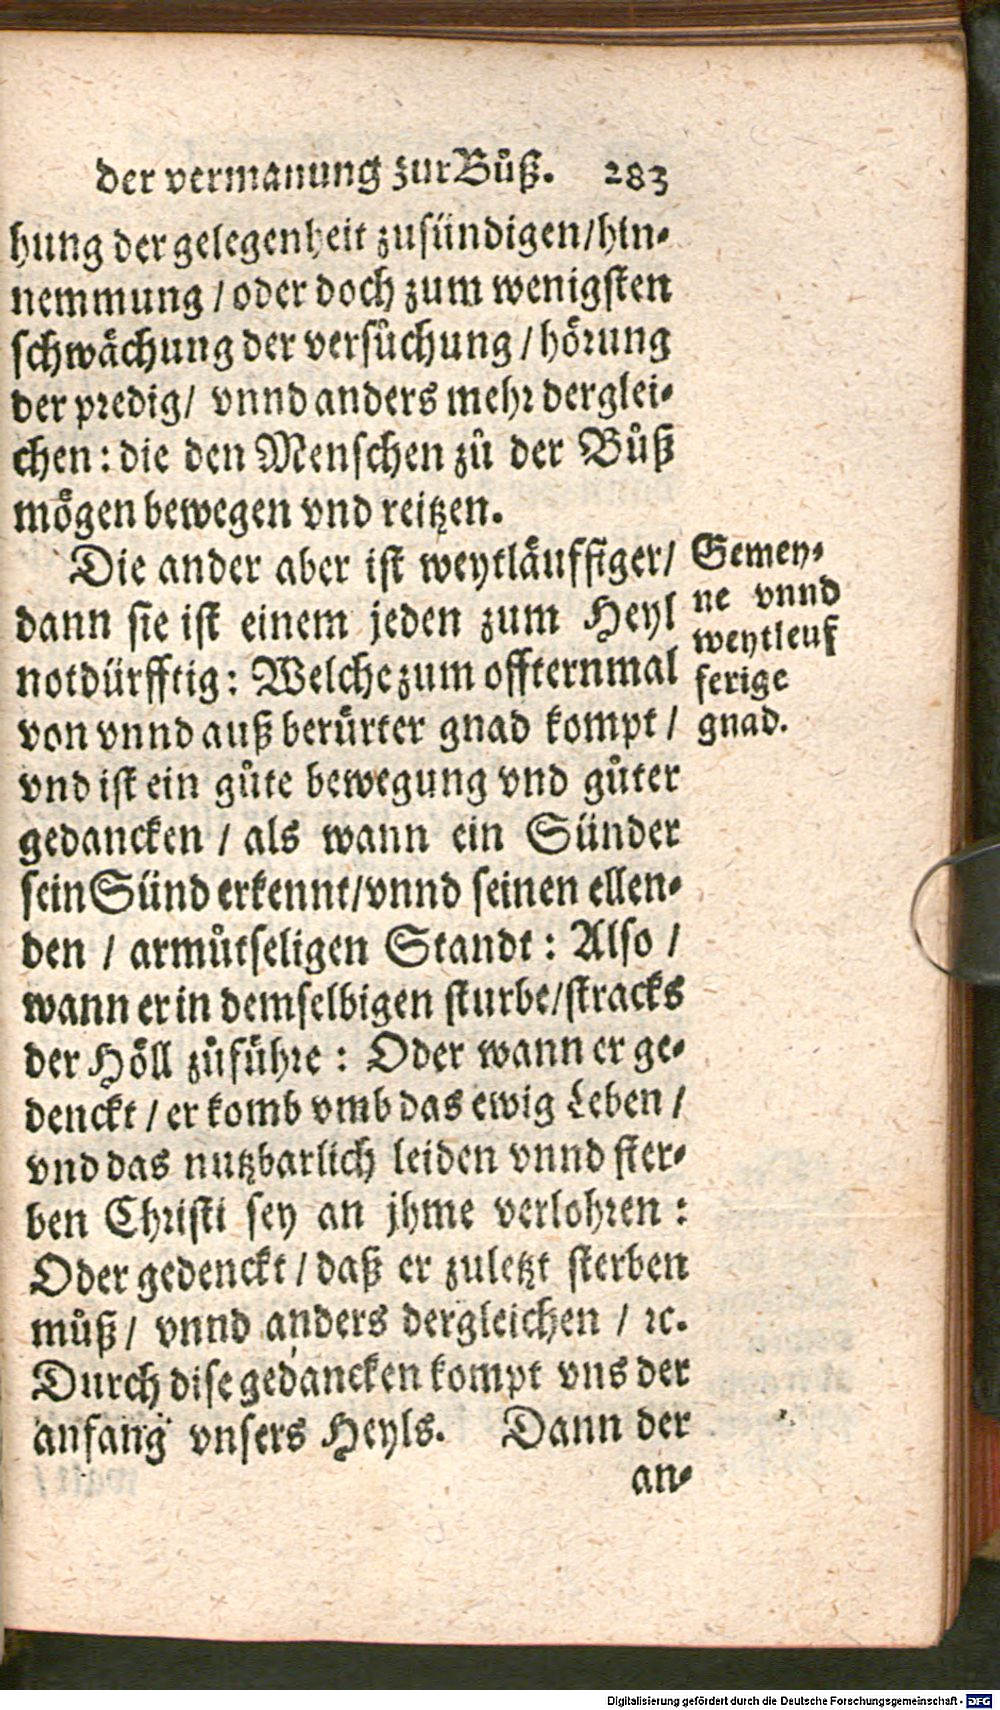 der vermanung zur Bůß. 283
hung der gelegenheit zusündigen/hin-
nemmung / oder doch zum wenigsten
schwächung der versůchung / hörung
der predig/ vnnd anders mehr derglei-
chen: die den Menschen zů der Bůß
mögen bewegen vnd reitzen.
Die ander aber ist weytläuffiger/
dann sie ist einem jeden zum Heyl
notdürfftig: Welche zum offternmal
von vnnd auß berürter gnad kompt /
vnd ist ein gůte bewegung vnd gůter
gedancken / als wann ein Sünder
sein Sünd erkennt/vnnd seinen ellen-
den / armůtseligen Standt: Also /
wann er in demselbigen sturbe/stracks
der Höll zůführe: Oder wann er ge-
denckt / er komb vmb das ewig Leben /
vnd das nutzbarlich leiden vnnd ster-
ben Christi sey an jhme verlohren:
Oder gedenckt / daß er zuletzt sterben
můß / vnnd anders dergleichen / ꝛc.
Durch dise gedancken kompt vns der
anfang vnsers Heyls. Dann der
an-
Gemey-
ne vnnd
weytleuf
ferige
gnad.
Digitalisierung gefördert durch die Deutsche Forschungsgemeinschaft - DFG